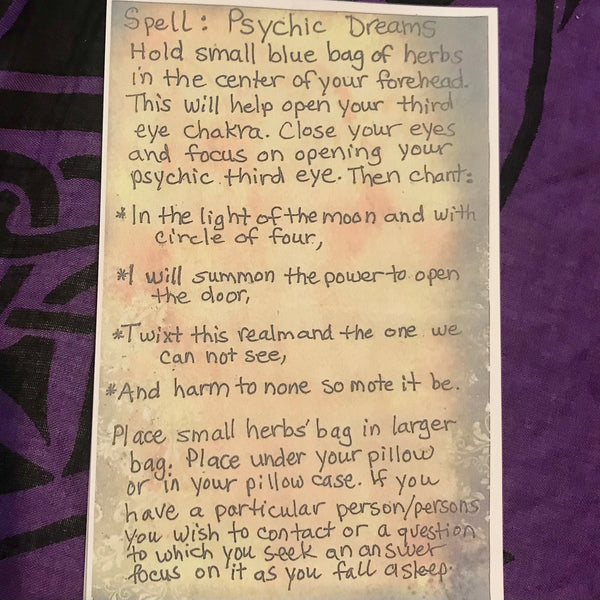 Spell: Psychic Dreams
Hold small blue bag of herbs
in the center of your forehead.
This will help open your third
eye chakra. Close your eyes
and focus on opening your
psychic third eye. Then chant:
*In the light of the moon and with
circle of four,
*I will summon the power to open
the door,
*Twixt this realm and the one we
can not see,
*And harm to none so mote it be.
Place small herbs' bag in larger
bag. Place under your pillow
or in your pillow case. If you
have a particular person/persons
you wish to contact or a question
to which you seek an answer
focus on it as you fall asleep.